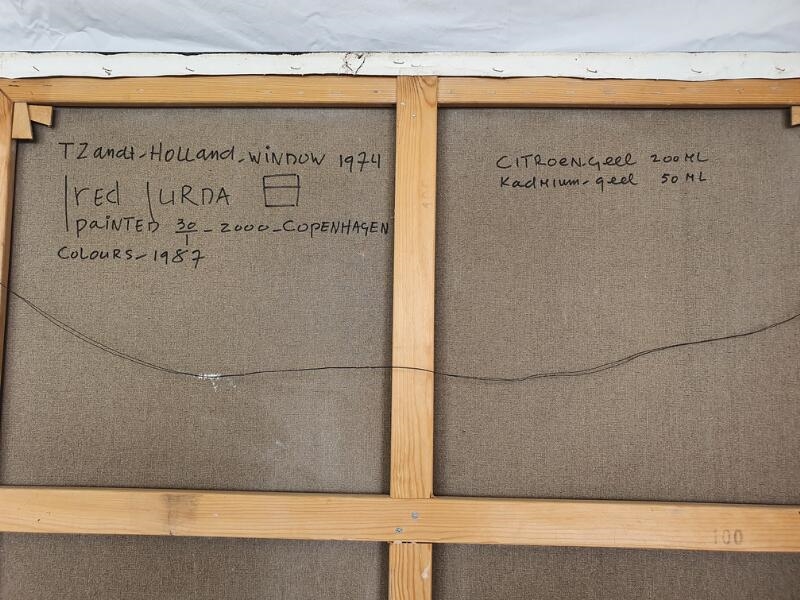 TZandt-Holland-WINDOW 1974
red JURDA
PaiNTED 30/1 - 2000 - COPENHAGEN
COLOURS - 1987
CITROEN-Geel 200 ML
KadMium-geel 50 ML
100